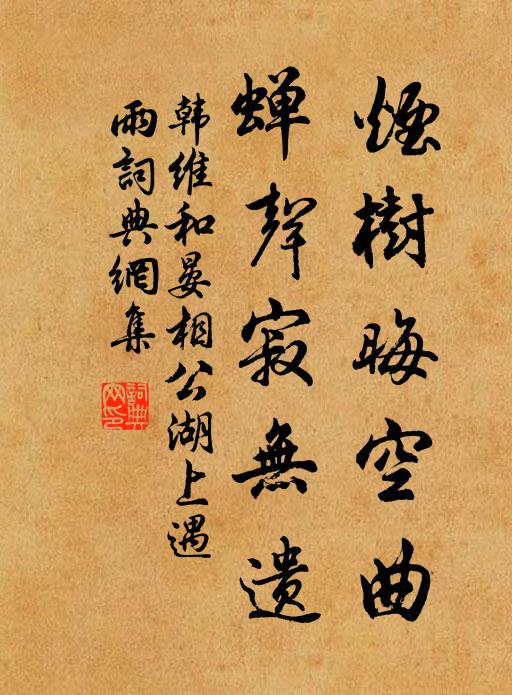 煙樹晦空曲
蝉聲寂無遺
韩維和晏相公湖上遇
雨詞典網集
詞典
网印